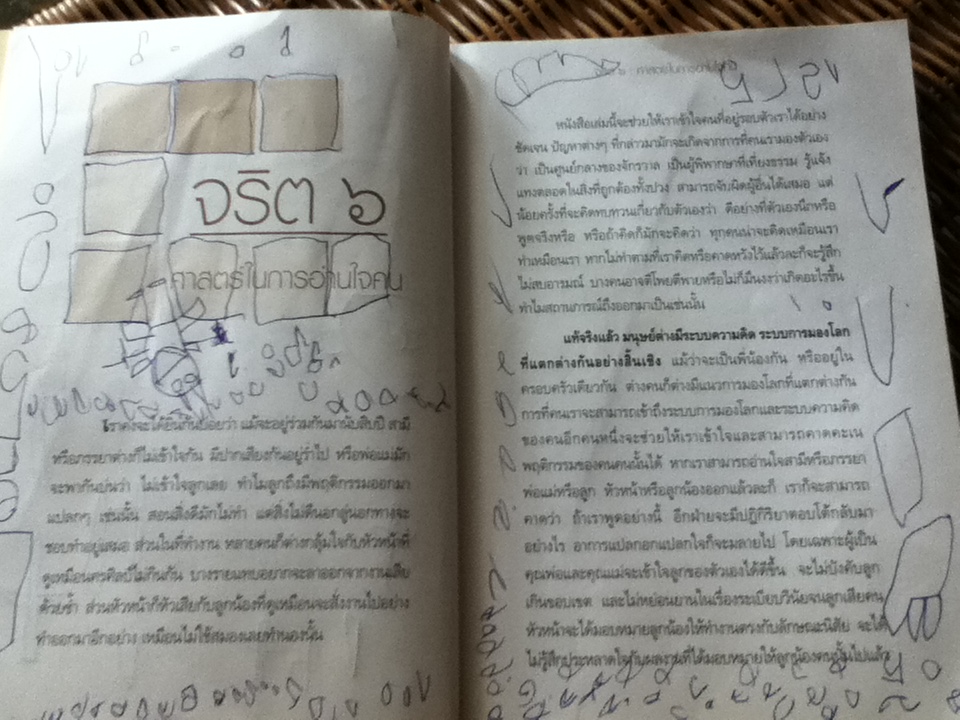 จริต ๖
ศาสตร์ในการอ่านใจคน
เราคงจะได้ยินกันบ่อยว่า แม้จะอยู่ร่วมกันมานับสิบปี สามี
หรือภรรยาต่างก็ไม่เข้าใจกัน มีปากเสียงกันอยู่ร่ำไป หรือพ่อแม่มัก
จะพากันบ่นว่า ไม่เข้าใจลูกเลย ทำไมลูกถึงมีพฤติกรรมออกมา
แปลกๆ เช่นนั้น สอนสิ่งดีมักไม่ทำ แต่สิ่งไม่ดีนอกลู่นอกทางจะ
ชอบทำอยู่เสมอ ส่วนในที่ทำงาน หลายคนก็ต่างกลุ้มใจกับหัวหน้าที่
ดูเหมือนศรศิลป์ไม่กินกัน บางรายแทบอยากจะลาออกจากงานเสีย
ด้วยซ้ำ ส่วนหัวหน้าก็หัวเสียกับลูกน้องที่ดูเหมือนจะสั่งงานไปอย่าง
ทำออกมาอีกอย่าง เหมือนไม่ใช้สมองเลยทำนองนั้น
จริต ๖ ศาสตร์ในการอ่านใจคน
หนังสือเล่มนี้จะช่วยให้เราเข้าใจคนที่อยู่รอบตัวเราได้อย่าง
ชัดเจน ปัญหาต่างๆ ที่กล่าวมามักจะเกิดจากการที่คนเรามองตัวเอง
ว่า เป็นศูนย์กลางของจักรวาล เป็นผู้พิพากษาที่เที่ยงธรรม รู้แจ้ง
แทงตลอดในสิ่งที่ถูกต้องทั้งปวง สามารถจับผิดผู้อื่นได้เสมอ แต่
น้อยครั้งที่จะคิดทบทวนเกี่ยวกับตัวเองว่า ดีอย่างที่ตัวเองนึกหรือ
พูดจริงหรือ หรือถ้าคิดก็มักจะคิดว่า ทุกคนน่าจะคิดเหมือนเรา
ทำเหมือนเรา หากไม่ทำตามที่เราคิดหรือคาดหวังไว้แล้วละก็จะรู้สึก
ไม่สบอารมณ์ บางคนอาจตีโพยตีพายหรือไม่ก็มึนงงว่าเกิดอะไรขึ้น
ทำไมสถานการณ์ถึงออกมาเป็นเช่นนั้น
แท้จริงแล้ว มนุษย์ต่างมีระบบความคิด ระบบการมองโลก
ที่แตกต่างกันอย่างสิ้นเชิง แม้ว่าจะเป็นพี่น้องกัน หรืออยู่ใน
ครอบครัวเดียวกัน ต่างคนก็ต่างมีแนวการมองโลกที่แตกต่างกัน
การที่คนเราจะสามารถเข้าถึงระบบการมองโลกและระบบความคิด
ของคนอีกคนหนึ่งจะช่วยให้เราเข้าใจและสามารถคาดคะเน
พฤติกรรมของคนคนนั้นได้ หากเราสามารถอ่านใจสามีหรือภรรยา
พ่อแม่หรือลูก หัวหน้าหรือลูกน้องออกแล้วละก็ เราก็จะสามารถ
คาดว่า ถ้าเราพูดอย่างนี้ อีกฝ่ายจะมีปฏิกิริยาตอบโต้กลับมา
อย่างไร อาการแปลกอกแปลกใจก็จะมลายไป โดยเฉพาะผู้เป็น
คุณพ่อและคุณแม่จะเข้าใจลูกของตัวเองได้ดีขึ้น จะไม่บังคับลูก
เกินขอบเขต และไม่หย่อนยานในเรื่องระเบียบวินัยจนลูกเสียคน
หัวหน้าจะได้มอบหมายลูกน้องให้ทำงานตรงกับลักษณะนิสัย จะได้
ไม่รู้สึกประหลาดใจกับผลงานที่ได้มอบหมายให้ลูกน้องคนนั้นไปแล้ว